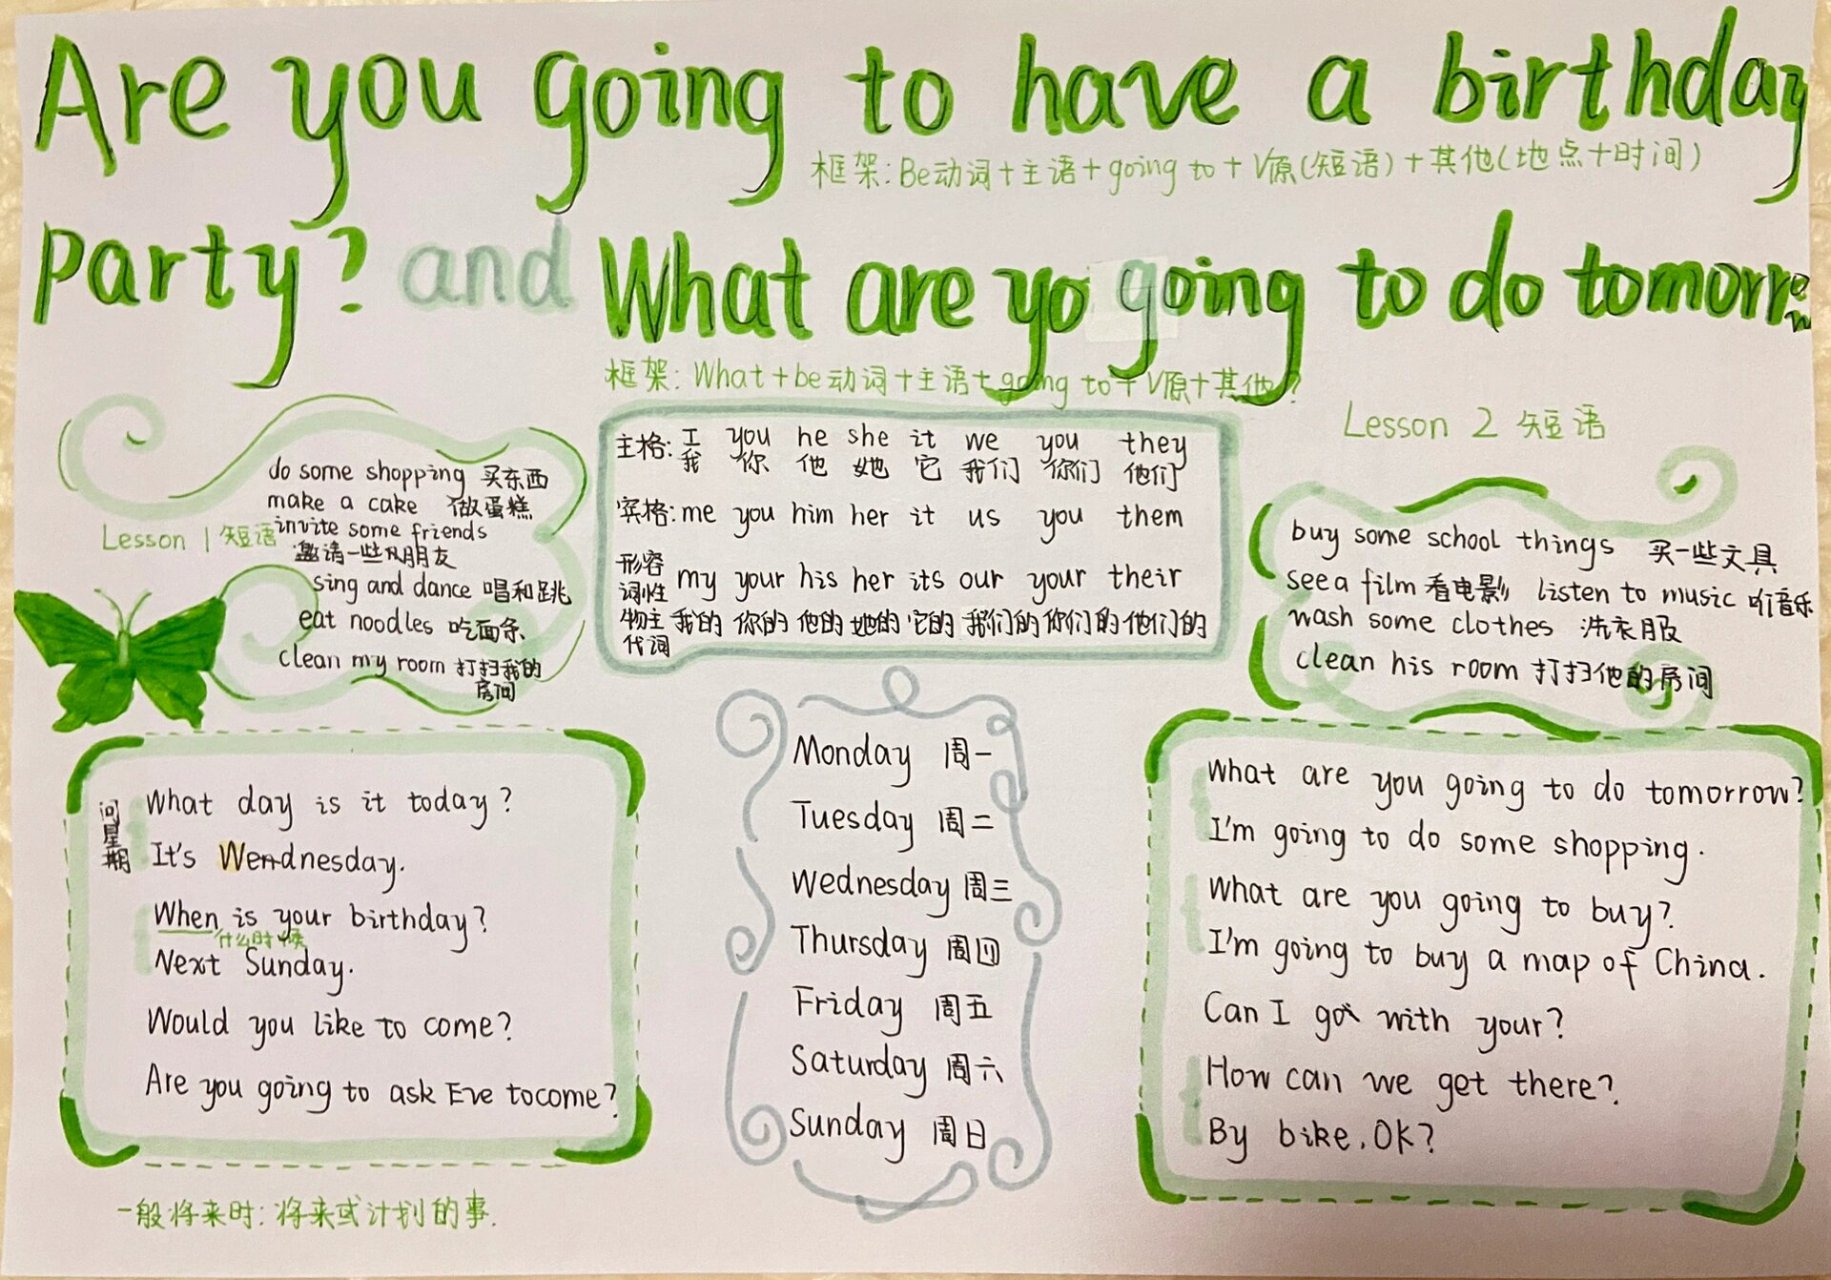 Are you going to have a birthday
框架:Be动词+主语+going to+V原(短语)+其他(地点+时间)
Party? and What are yo going to do tomorrow
框架: What+be动词+主语+going to+V原+其他?
do some shopping 买东西
make a cake 做蛋糕
Lesson 1 短语
invite some friends
邀请一些朋友
sing and dance 唱和跳
eat noodles 吃面条
clean my room 打扫我的
房间
主格: I you he she it we you they
我 你 他 她 它 我们 你们 他们
宾格: me you him her it us you them
形容
词性
物主
代词
my your his her its our your their
我的 你的 他的 她的 它的 我们的 你们的 他们的
Lesson 2 短语
buy some school things 买一些文具
see a film 看电影 listen to music 听音乐
wash some clothes 洗衣服
clean his room 打扫他的房间
问星期
What day is it today?
It's Wendnesday.
When is your birthday?
什么时候
Next Sunday.
Would you like to come?
Are you going to ask Eve tocome?
一般将来时: 将来或计划的事.
Monday 周一
Tuesday 周二
Wednesday 周三
Thursday 周四
Friday 周五
Saturday 周六
Sunday 周日
What are you going to do tomorrow?
I'm going to do some shopping.
What are you going to buy?
I'm going to buy a map of China.
Can I go with your?
How can we get there?
By bike, OK?